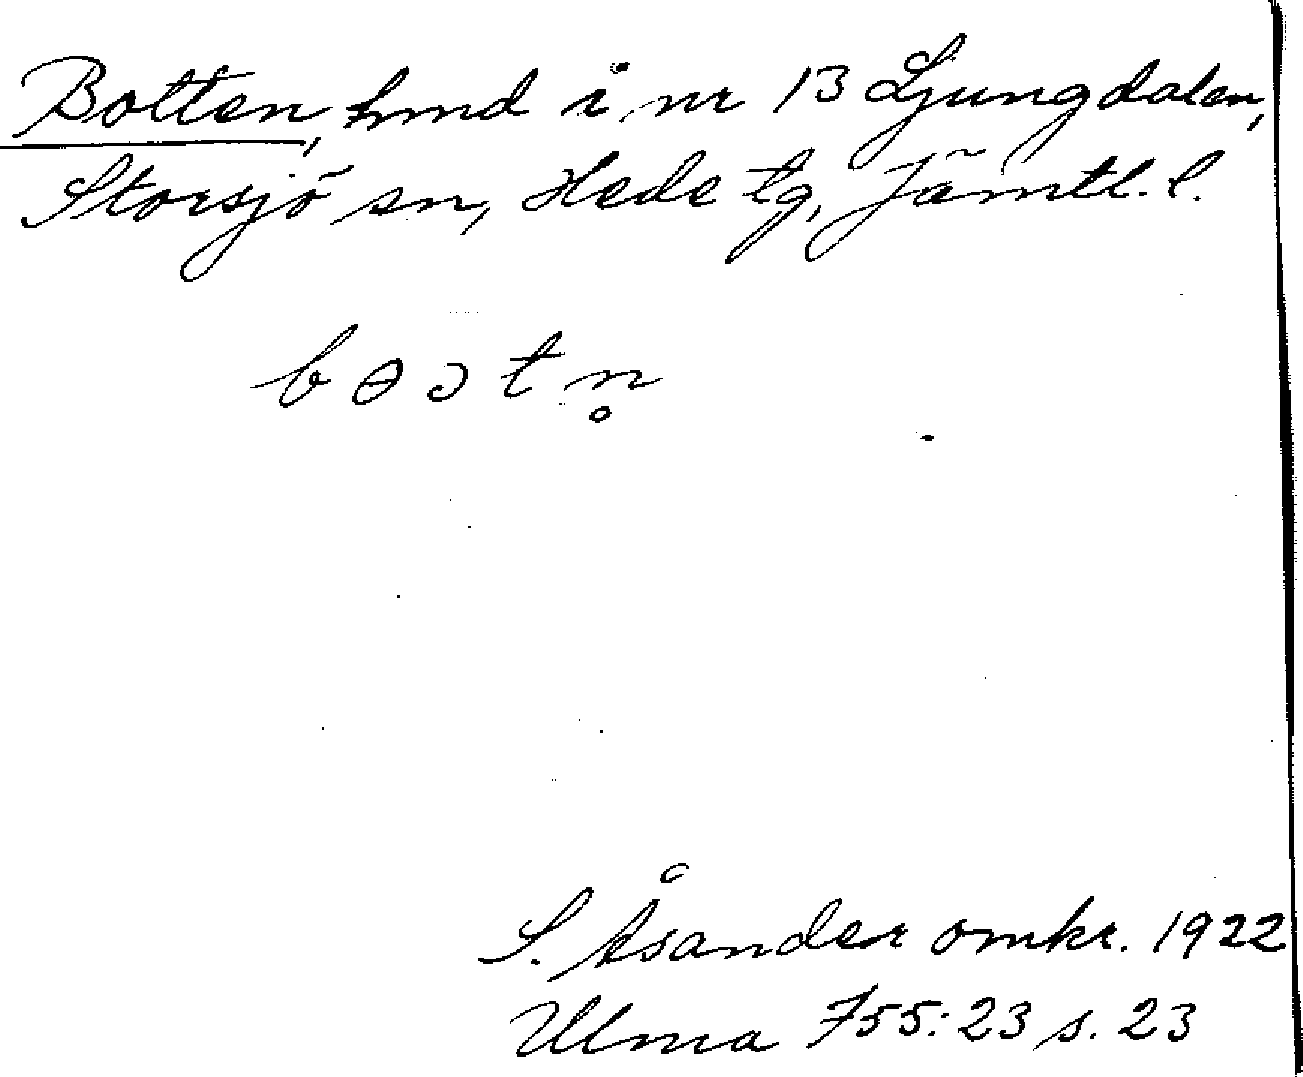 Botten, hmd i nr 13 Ljungdalen,
Storsjö sn, Hede tg, Jämtl. l.
bɵɔtn̥
S. Åsander omkr. 1922
Ulma 755:23 s. 23